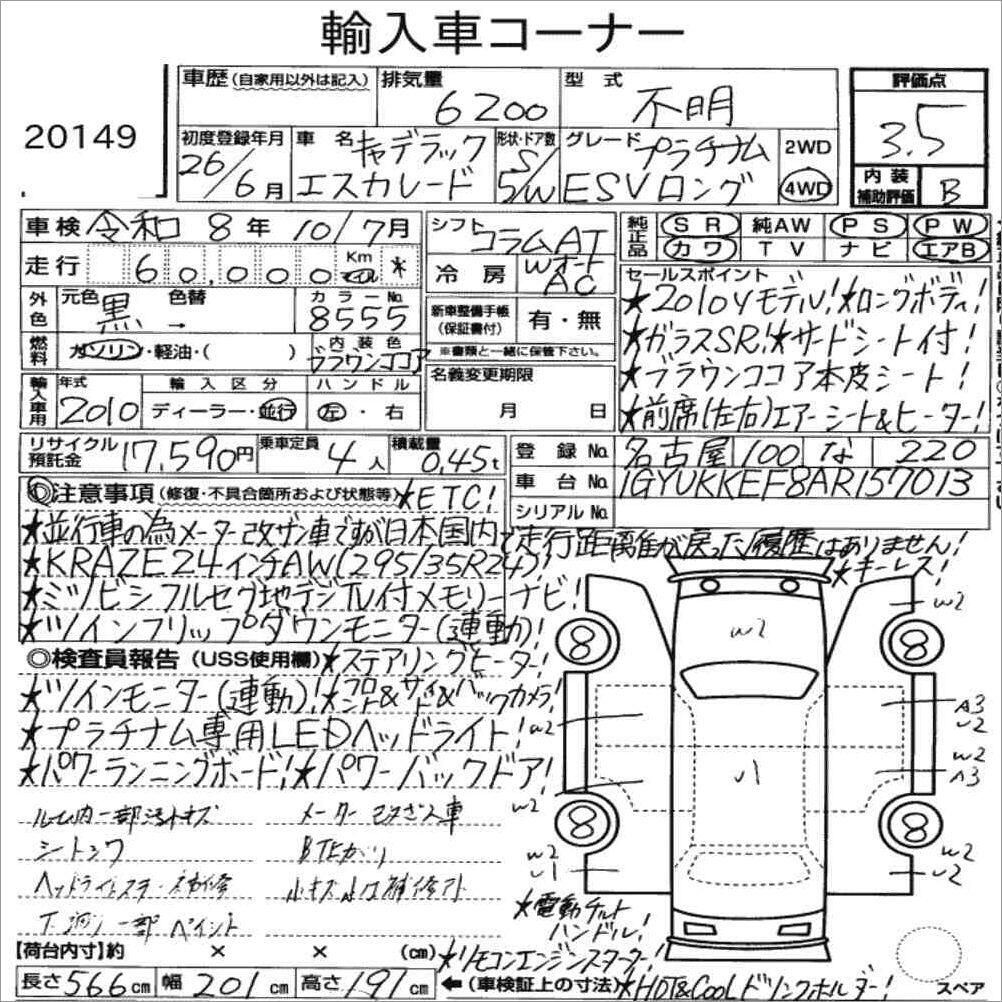 輸入車コーナー
20149
車歴(自家用以外は記入) 排気量 6200 型式 不明 評価点 3.5
初度登録年月 26/6月 車名 キャデラック エスカレード 形状・ドア数 S/5W グレード プラチナム ESVロング 2WD 4WD 内装補助評価 B
車検 令和 8年 10/7月 シフト コラムAT 純正品 SR 純AW PS PW
走行 60,000 Km * 冷房 Wオート AC カワ TV ナビ エアB
外色 元色 黒 → 色替 カラーNo. 8555 新車整備手帳(保証書付) 有・無
※書類と一緒に保管下さい。
燃料 ガソリン・軽油・( ) 内装色 ブラウンココア
輸入車用 年式 2010 輸入区分 ディーラー・並行 ハンドル 左・右 名義変更期限 月 日
セールスポイント
★2010yモデル!★ロングボディ!
★ガラスSR!★サードシート付!
★ブラウンココア本皮シート!
★前席(左右)エアーシート&ヒーター!
リサイクル預託金 17,590円 乗車定員 4人 積載量 0.45t 登録No. 名古屋 100 な 220
車台No. 1GYUKKEF8AR157013
シリアルNo.
◎注意事項(修復・不具合箇所および状態等)★ETC!
★並行車の為メーター改ザン車ですが日本国内で走行距離が戻った履歴はありません!
★KRAZE24インチAW(295/35R24)! ★キーレス!
★ミツビシフルセグ地デジTV付メモリーナビ!
★ツインフリップダウンモニター(連動)!
◎検査員報告(USS使用欄)★ステアリングヒーター!
★ツインモニター(連動)!★フロント&サイド&バックカメラ!
★プラチナム専用LEDヘッドライト!
★パワーランニングボード!★パワーバックドア!
メーター改ざん車
シートシワ
小キズ小凹補修跡
下廻り一部ペイント
W2 W2
8 8
W2 A3 U2
U1 W2 A3
W2
8 8
W2 U1 W2 U2
★電動チルトハンドル!
【荷台内寸】約 × × (cm) ★リモコンエンジンスターター!
長さ566cm 幅201cm 高さ191cm ←(車検証上の寸法)★HOT&COOLドリンクホルダー!
スペア